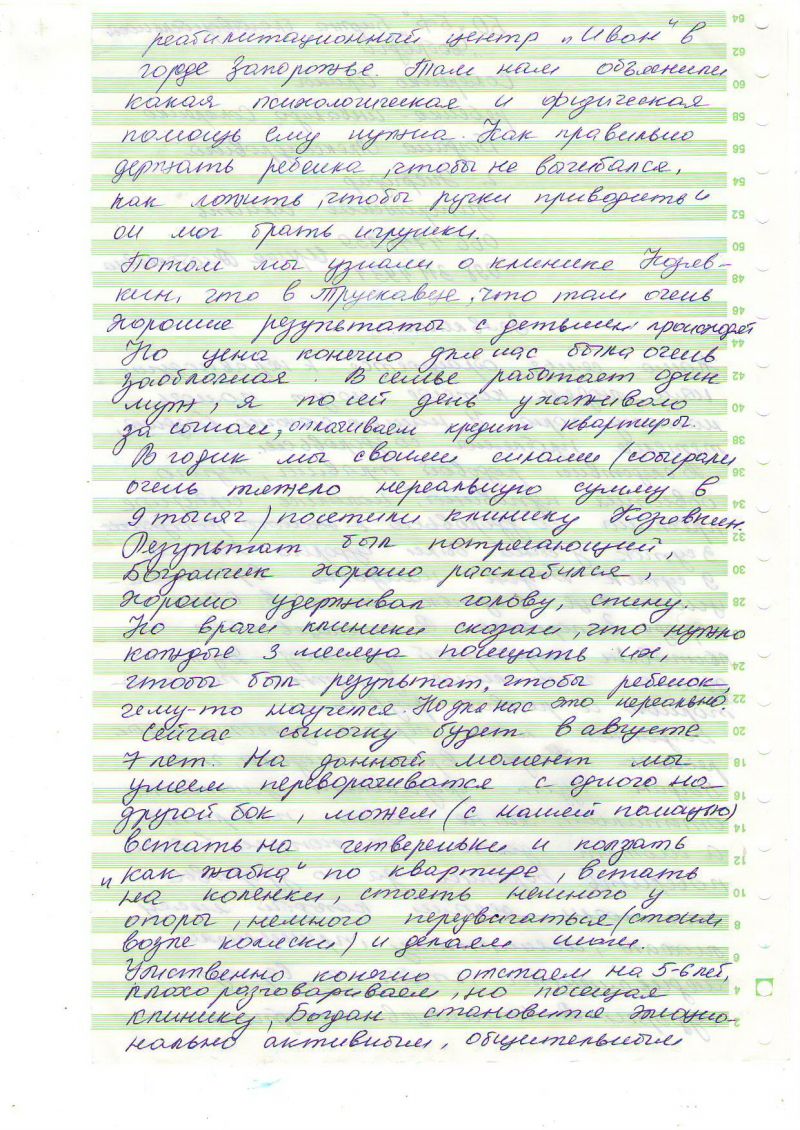 реабилитационный центр „Иван" в
горде Запорожье. Там нам объяснили
какая психологическая и физическая
помощь ему нужна. Как правильно
держать ребенка, чтобы не выгибался,
как ложить, чтобы ручки приводить и
он мог брать игрушки.
Потом мы узнали о клинике Козяв-
кин, что в Трускавце, что там очень
хорошие результаты с детьми происходят
Но цена конечно для нас была очень
заоблачная. В семье работает один
муж, я по сей день ухаживаю
за сыном, оплачиваем кредит квартиры.
В годик мы своими силами (собирали
очень тяжело нереальную сумму в
9 тысяч) посетили клинику Козявкин.
Результат был потрясающий,
Богданчик хорошо расслабился,
хорошо удерживал голову, спину.
Но врачи клиники сказали, что нужно
каждые 3 месяца посещать их,
чтобы был результат, чтобы ребенок,
чему-то научился. Но для нас это нереально.
Сейчас сыночку будет в августе
7 лет. На данный момент мы
умеем переворачиватся с одного на
другой бок, можем (с нашей помощью)
встать на четвереньки и ползать
„как жабка" по квартире, встать
на коленки, стоять немного у
опоры, немного передвигаться (стоим
возле коляски) и делаем шаги.
Умственно конечно отстаем на 5-6 лет,
плохо разговариваем, но посещая
клинику, Богдан становится эмоцио-
нально активным, общительным
64
62
60
58
56
54
52
50
48
46
44
42
40
38
36
34
32
30
28
26
24
22
20
18
16
14
12
10
8
6
4
2